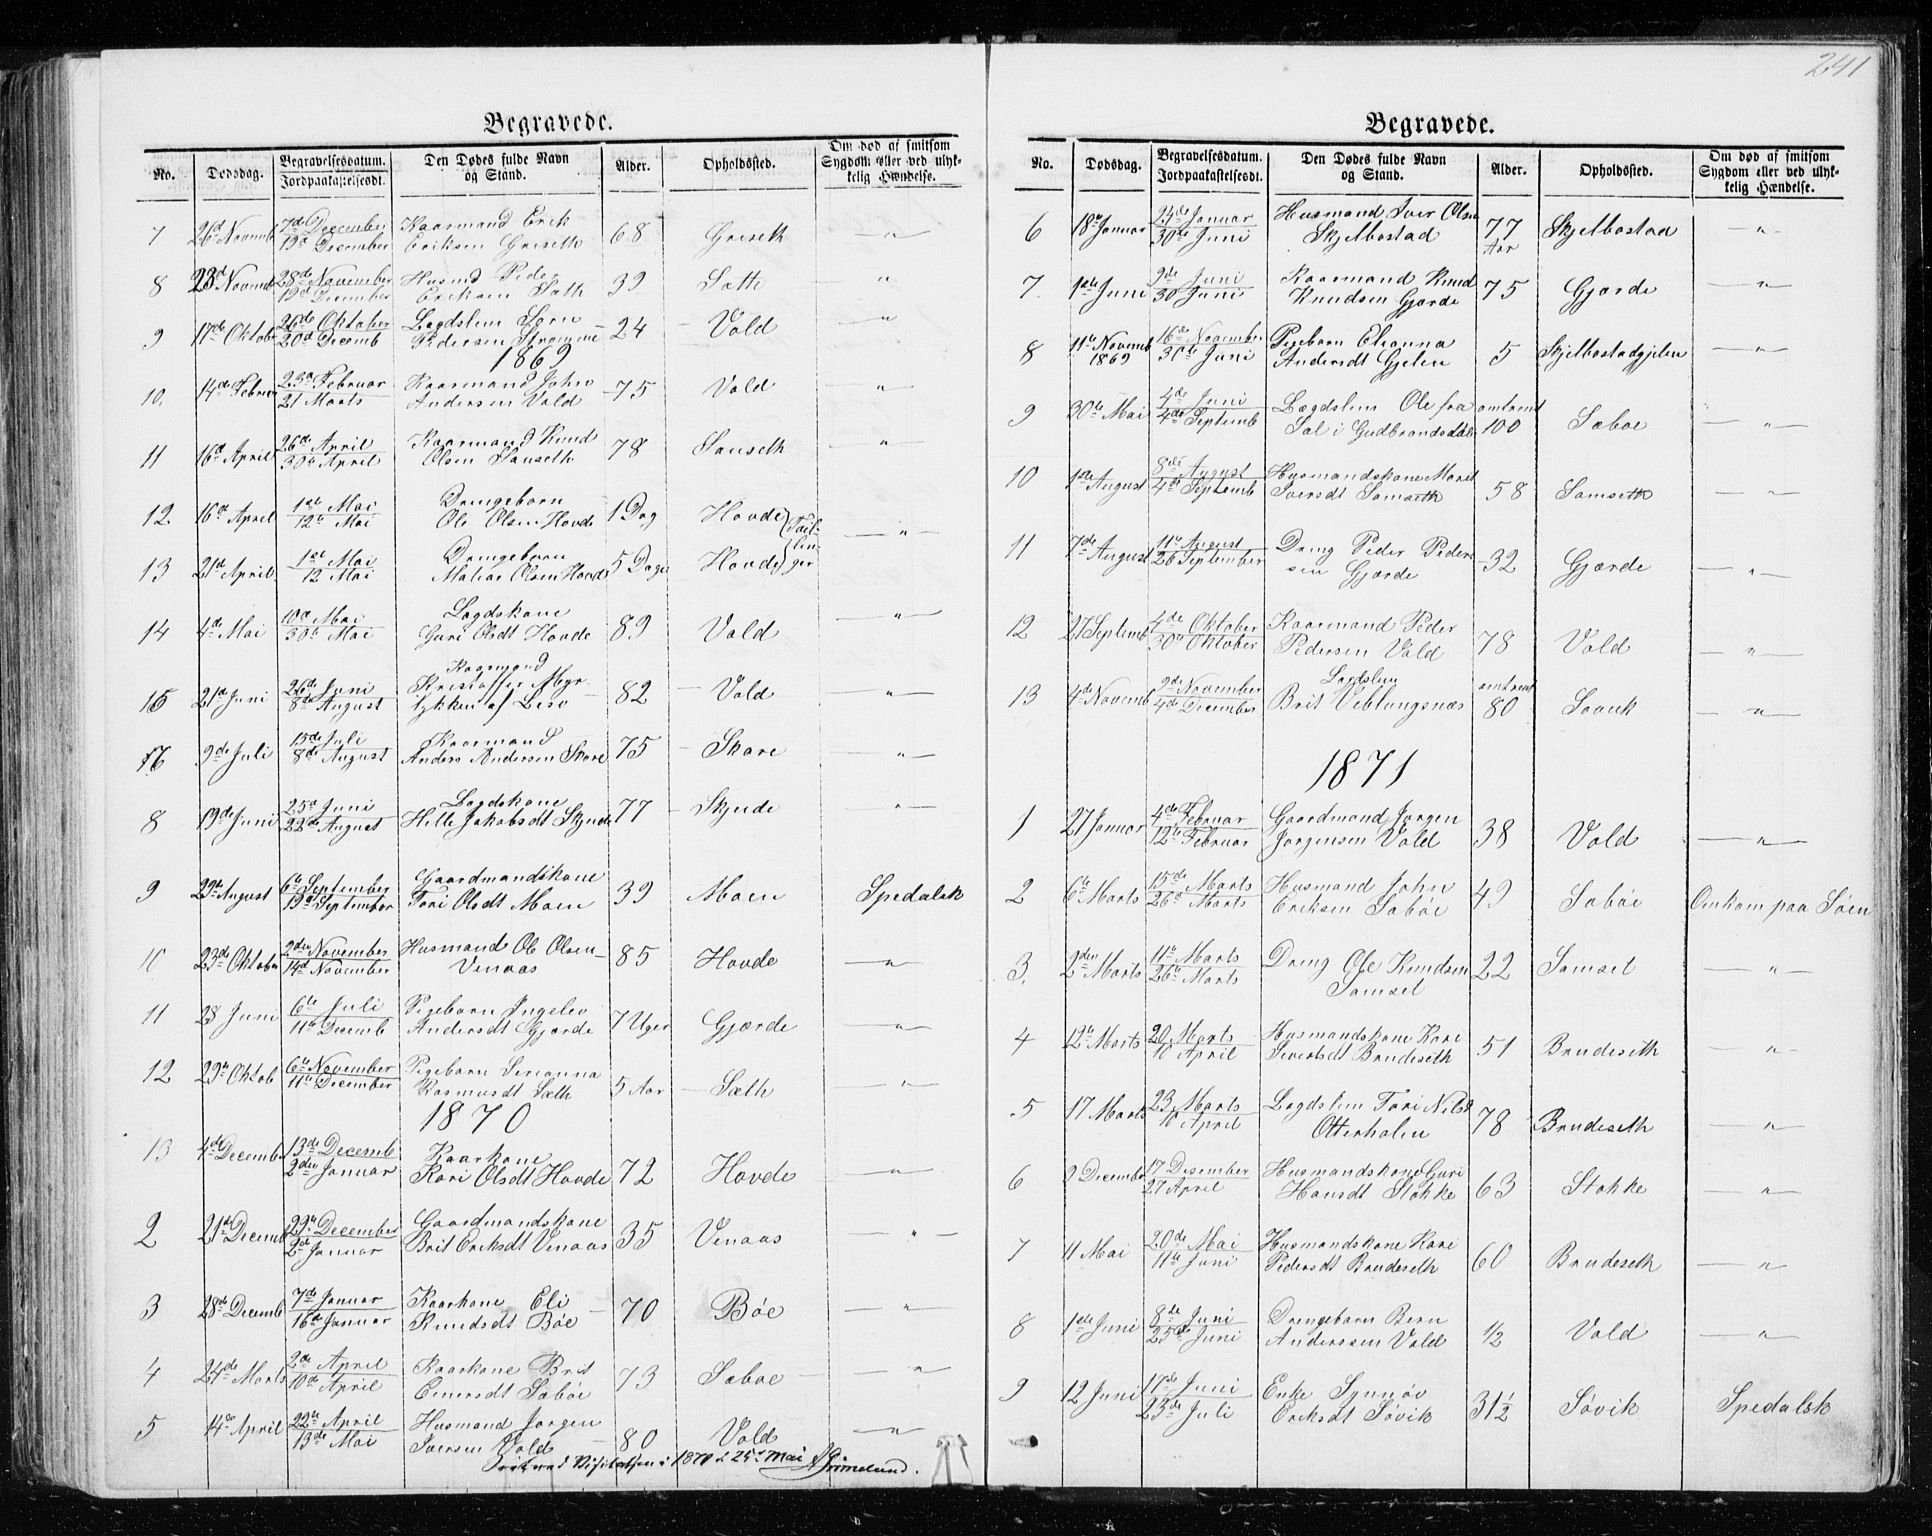 241
Begravede.
No. Dødsdag. Begravelsesdatum. Jordpaakastelsesdt. Den Dødes fulde Navn og Stand. Alder. Opholdssted. Om død af smitsom Sygdom eller ved ulykkelig Hændelse.
7 26d Novemb 7de December Kaarmand Erik 68 Griseth — " —
19d December Eriksen Griseth
8 23d Novemb 28de November Husmd Peder 39 Sætte "
19d December Eriksen Sæth
9 17de Oktob 26de Oktober Lægdslem Søren 24 Vold — " —
20d Decemb Pedersen Strømme
1869
10. 14de Februar 23d Februar Kaarmand John 75 Vold — " —
21 Marts Andersen Vold
11 16d April 26de April Kaarmand Knud 78 Sanseth — " —
30te April Olsen Sanseth
12 16d April 1ste Mai Drengebarn 1 Dag Hovde Tvil- — " —
12te Mai Ole Olsen Hovde lin-
13 21d April 1ste Mai Drengebarn 5 Dage Hovde ger
12 Mai Matias Olsen Hovde
14 4de Mai 10d Mai Lægdskone 89 Vold — " —
30te Mai Guri Olsdt Hovde
15 21d Juni 26de Juni Kaarmand 82 Vold — " —
8de August Kristoffer Myr-
lykken af Lesø
16 9de Juli 15de Juli Kaarmand 75 Skare — " —
8de August Anders Andersen Skare
8 13de Juni 25d Juni Lægdskone 77 Skjnde — " —
22de August Hille Jakobsdt Skjnde
9 29te August 6te September Gaardmandskone 39 Moen Spedalsk
19d September Tori Olsdt Moen
10 23de Oktober 2den November Husmand Ole Olsen 85 Hovde — " —
14d November Venaas
11 28 Juni 6te Juli Pigebarn Ingelev 7 Uger Gjærde — " —
11te Decemb Andersdt Gjærde
12 29te Oktob 6te November Pigebarn Serianna 5 Aar Sæth — " —
11te December Rasmusdt Sæth
1870
13 4de December 13de Decemb Kaarkone 72 Hovde — " —
2den Januar Kari Olsdt Hovde
2 21de Decemb 29te December Gaardmandskone 35 Venaas — " —
2de Januar Brit Eriksdt Venaas
3 28de Decemb 7de Januar Kaarkone Eli 70 Bøe — " —
16de Januar Knudsdt Bøe
4 24de Marts 2de April Kaarkone Brit 73 Sæbøe — " —
10de April Einersdt Sæbøe
5 14de April 22de April Husmand Jørgen 80 Vold — " —
13de Mai Iversen Vold
ved Visitatsen i 1870 d. 25d Mai Grimelund.
Begravede.
No. Dødsdag. Begravelsesdatum. Jordpaakastelsesdt. Den Dødes fulde Navn og Stand. Alder. Opholdssted. Om død af smitsom Sygdom eller ved ulykkelig Hændelse.
6 18de Januar 24de Januar Husmand Iver Olsen 77 Skjelbostad — " —
30de Juni Skjelbostad Aar
7 1ste Juni 9de Juni Kaarmand Knud 75 Gjærde — " —
30 Juni Knudsen Gjærde
8 11te Novemb 16de November Pigebarn Elianna 5 Skjelbostadgjelen — " —
1869 30te Juni Andersdt Gjelen
9 30te Mai 4de Juni Lægdslem Ole fra omtrent Sæbøe — " —
4de Septemb Sel i Gudbrandsdalen 100
10 1ste August 8de August Husmandskone Marit 58 Samseth — " —
4de Septemb Iversdt Samseth
11 7de August 11te August Dreng Peder Peder- 32 Gjærde — " —
26 September sen Gjærde
12 27 Septemb 4de Oktober Kaarmand Peder 78 Vold — " —
30te Oktober Pedersen Vold
13 4de Novemb 9de November Lægdslem omtrent Søvik — " —
4de December Brit Veblungsnæs 80
1871
1 27 Januar 4de Februar Gaardmand Jørgen 38 Vold — " —
12te Februar Jørgensen Vold
2 6te Marts 15de Marts Husmand John 49 Sæbøe Omkom paa Søen
26d Marts Eriksen Sæbøe
3. 2den Marts 11te Marts Dreng Ole Knudsen 22 Samset — " —
26te Marts Samset
4 12te Marts 20 Marts Husmandskone Kari 51 Brudeseth — " —
10 April Sivertsdt Brudeseth
5 17 Marts 23 Marts Lægdslem Tori Nilsd 78 Brudeseth — " —
10 April Otterholen
6 9 December 17 Desember Husmandskone Guri 63 Stokke — " —
27 April Hansdt Stokke
7 11 Mai 20de Mai Husmandskone Kari 60 Brudeseth — " —
11te Juni Pedersdt Brudeseth
8 1ste Juni 8de Juni Drengebarn Bern 1/2 Vold — " —
25de Juni Anderssen Vold
9 12 Juni 17de Juni Enke Synnøv 31 1/2 Søvik Spedalsk
23de Juli Eriksdt Søvik